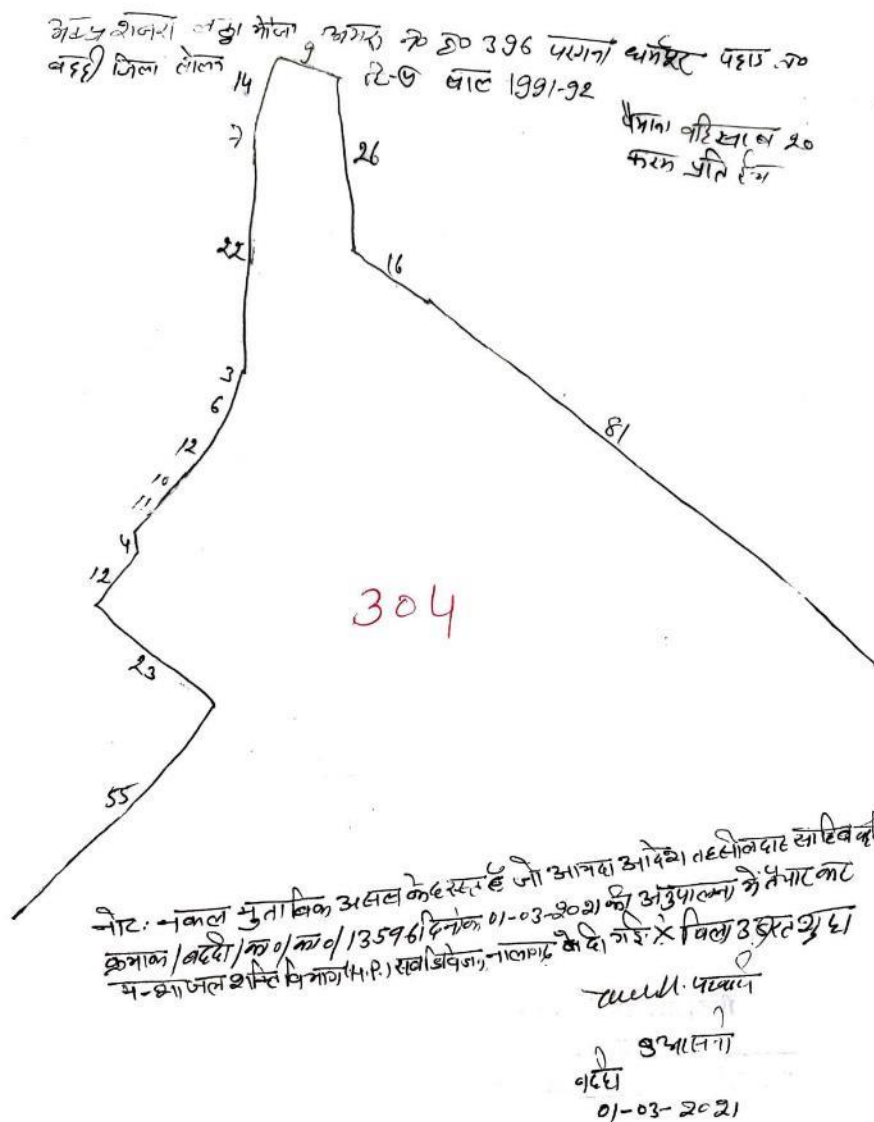 अक्स शजरा लठ्ठा मौजा न० ह० 396 परगना धर्मपुर पहाड़ त०
बद्दी जिला सोलन साल 1991-92
पैमाना बहिसाब 20
करम प्रति ईन्च
9
14
7
26
22
16
3
6
12
81
10
11
4
12
304
23
55
नोट: नकल मुताबिक असल के दरूस्त है जो आदेश तहसीलदार साहिब
क्रमांक/बद्दी/का०/का०/13596 दिनांक 01-03-2021 की अनुपालना में तैयार कर
जल शक्ति विभाग (H.P.) सब डिविजन, नालागढ़ को दी गई
पटवारी
बद्दी
01-03-2021